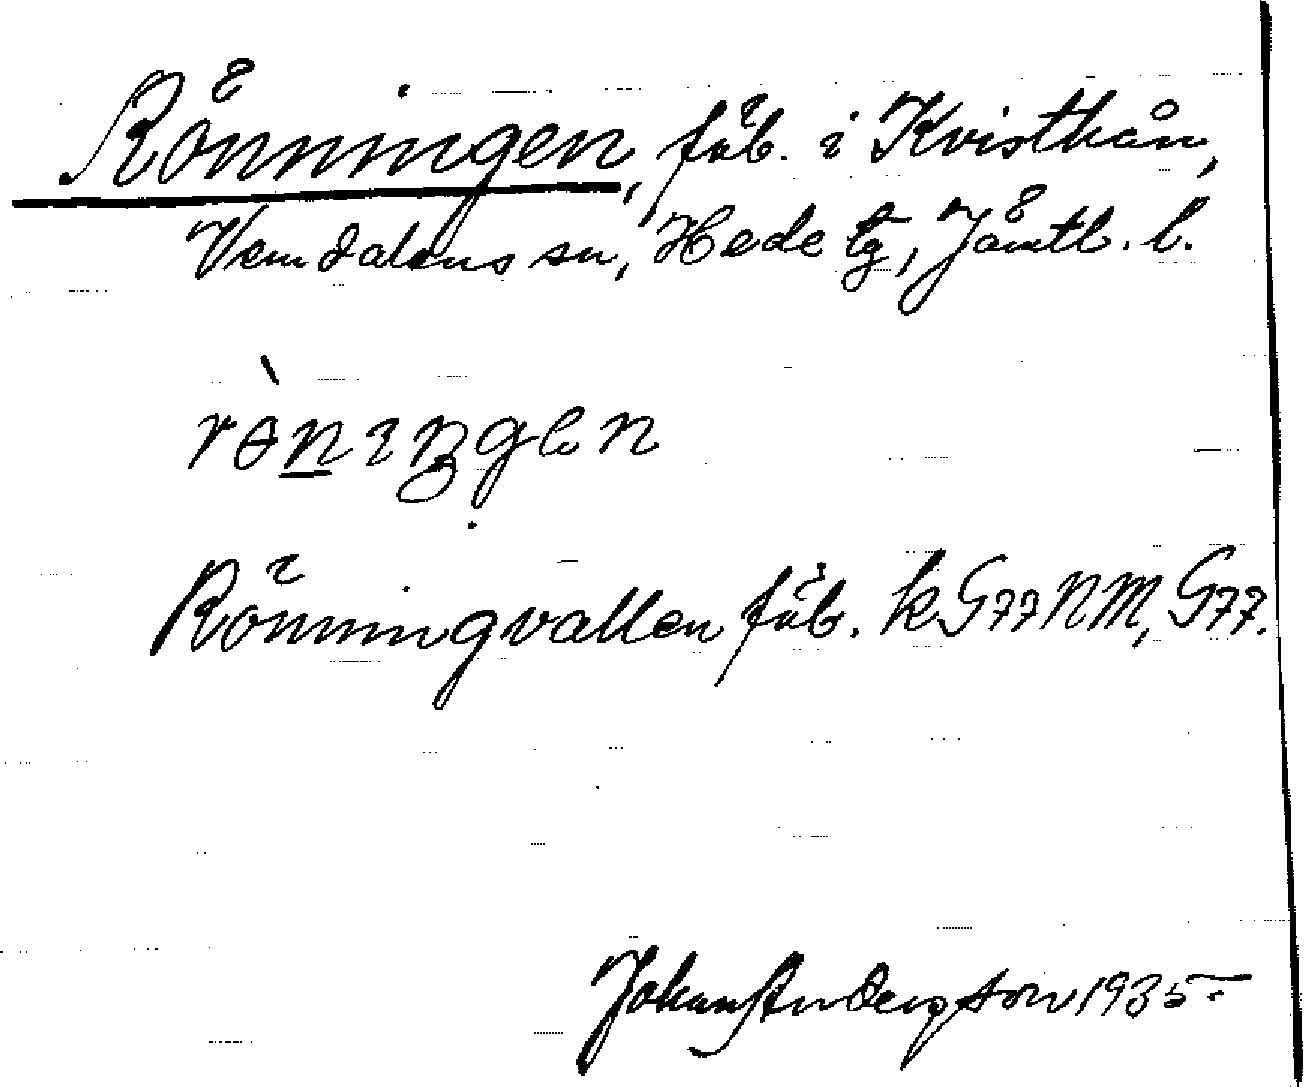 Rönningen, fäb. i Kvisthån,
Vemdalens sn, Hede tg, Jämtl. l.
rѳ̀nıŋgen
Rönningvallen fäb. k G77NM, G77.
Johan 1935.